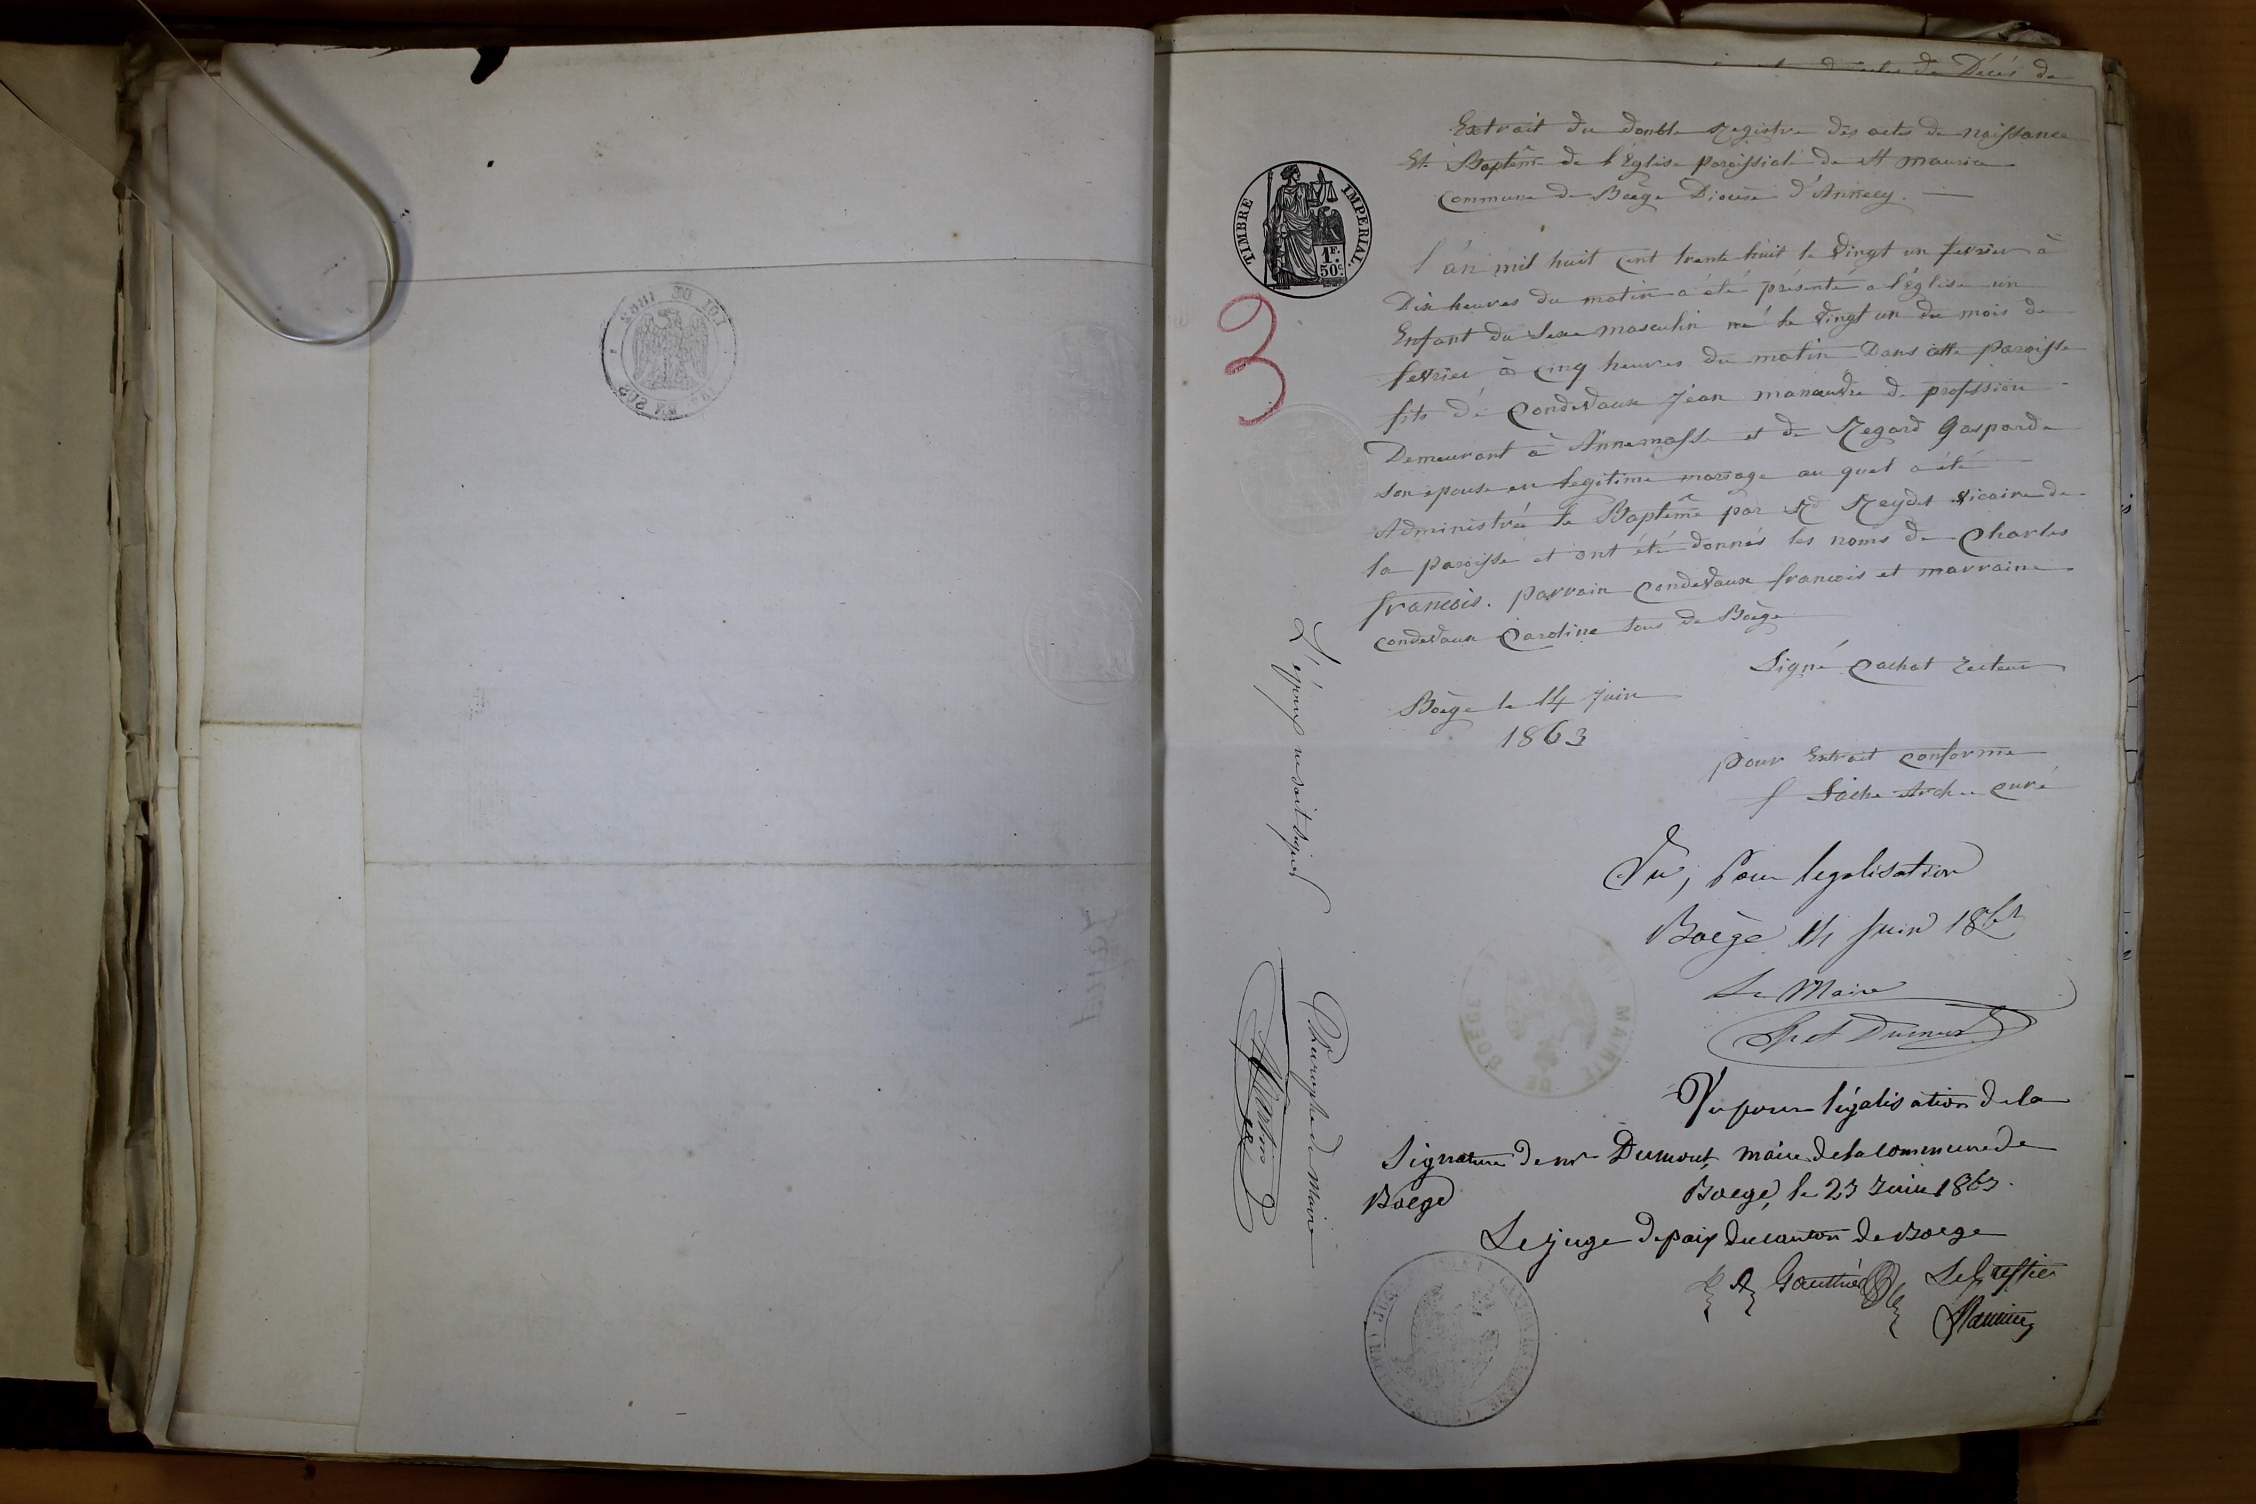 Extrait du double Registre des actes de naissance
Et Baptême de l'Eglise paroissial de St maurice
Commune de Boëge Diocèse d'Annecy.
TIMBRE IMPERIAL.
1F.
50c
l'an mil huit cent trente huit le vingt un fevrier à
Dix heures du matin a été présenté a l'église un
Enfant du sexe masculin né le vingt un du mois de
fevrier à cinq heures du matin Dans cette paroisse
3
fils de Condevaux Jean manœuvre de profession
Demeurant à Annemasse et de Regard Gasparde
son épouse en legitime mariage au quel a été
Administré le Baptême par Rd Reydet vicaire de
la paroisse et ont été donnés les noms de Charles
francois. parrain Condevaux francois et marraine
condevaux Caroline tous de Boëge
Signé Cachat recteur
Boëge le 14 Juin
1863
pour Extrait conforme
curé
Vu, Pour legalisation
Boëge 14 Juin 1863
Le Maire
Dumont
MAIRIE DE BOEGE
Vu pour légalisation de la
Signature de mr Dumont, maire de la commune de
Boege
Boege, le 23 Juin 1863.
Le juge de paix du canton de Boege
Gauthier
Le Greffier
L'époux ne sait signer
Paraphe du Maire
Martin
LOI DE 1862